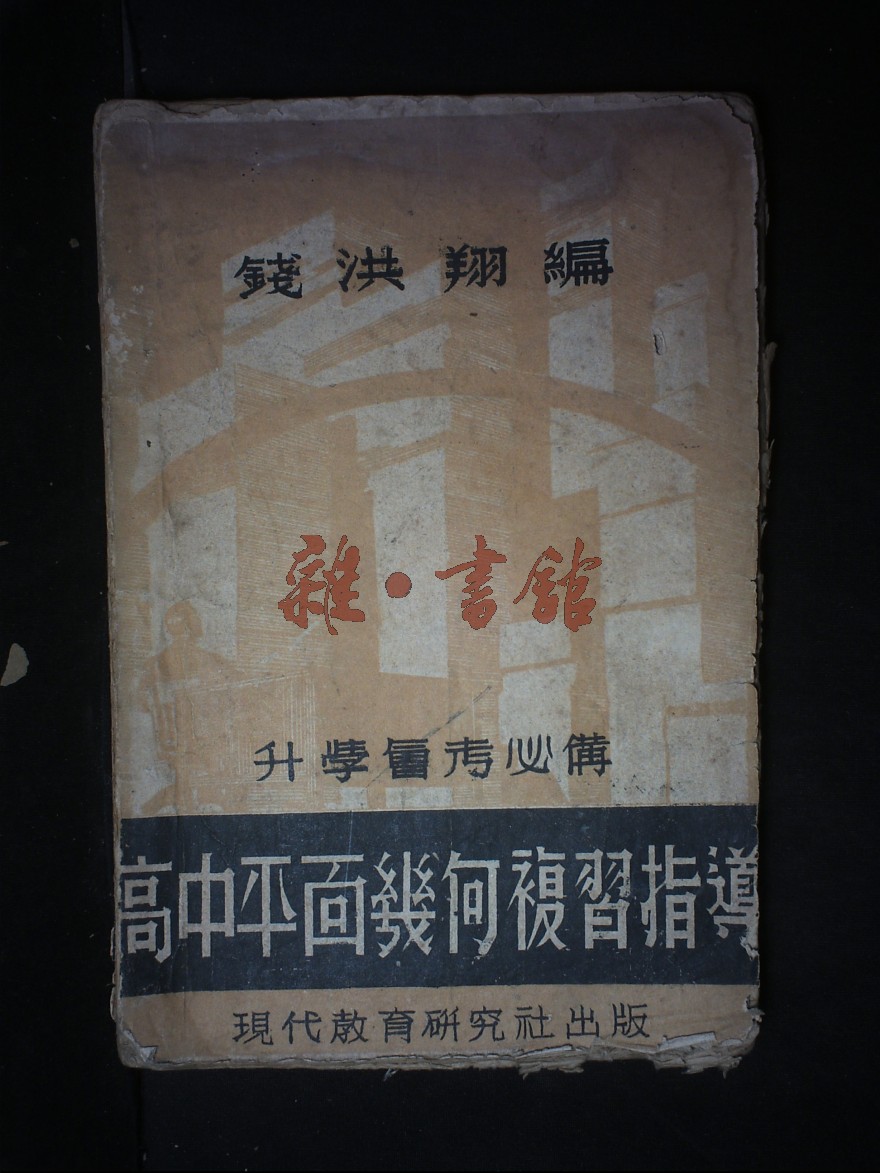 錢洪翔編
雜·書館
升學會考必備
高中平面幾何複習指導
現代教育研究社出版